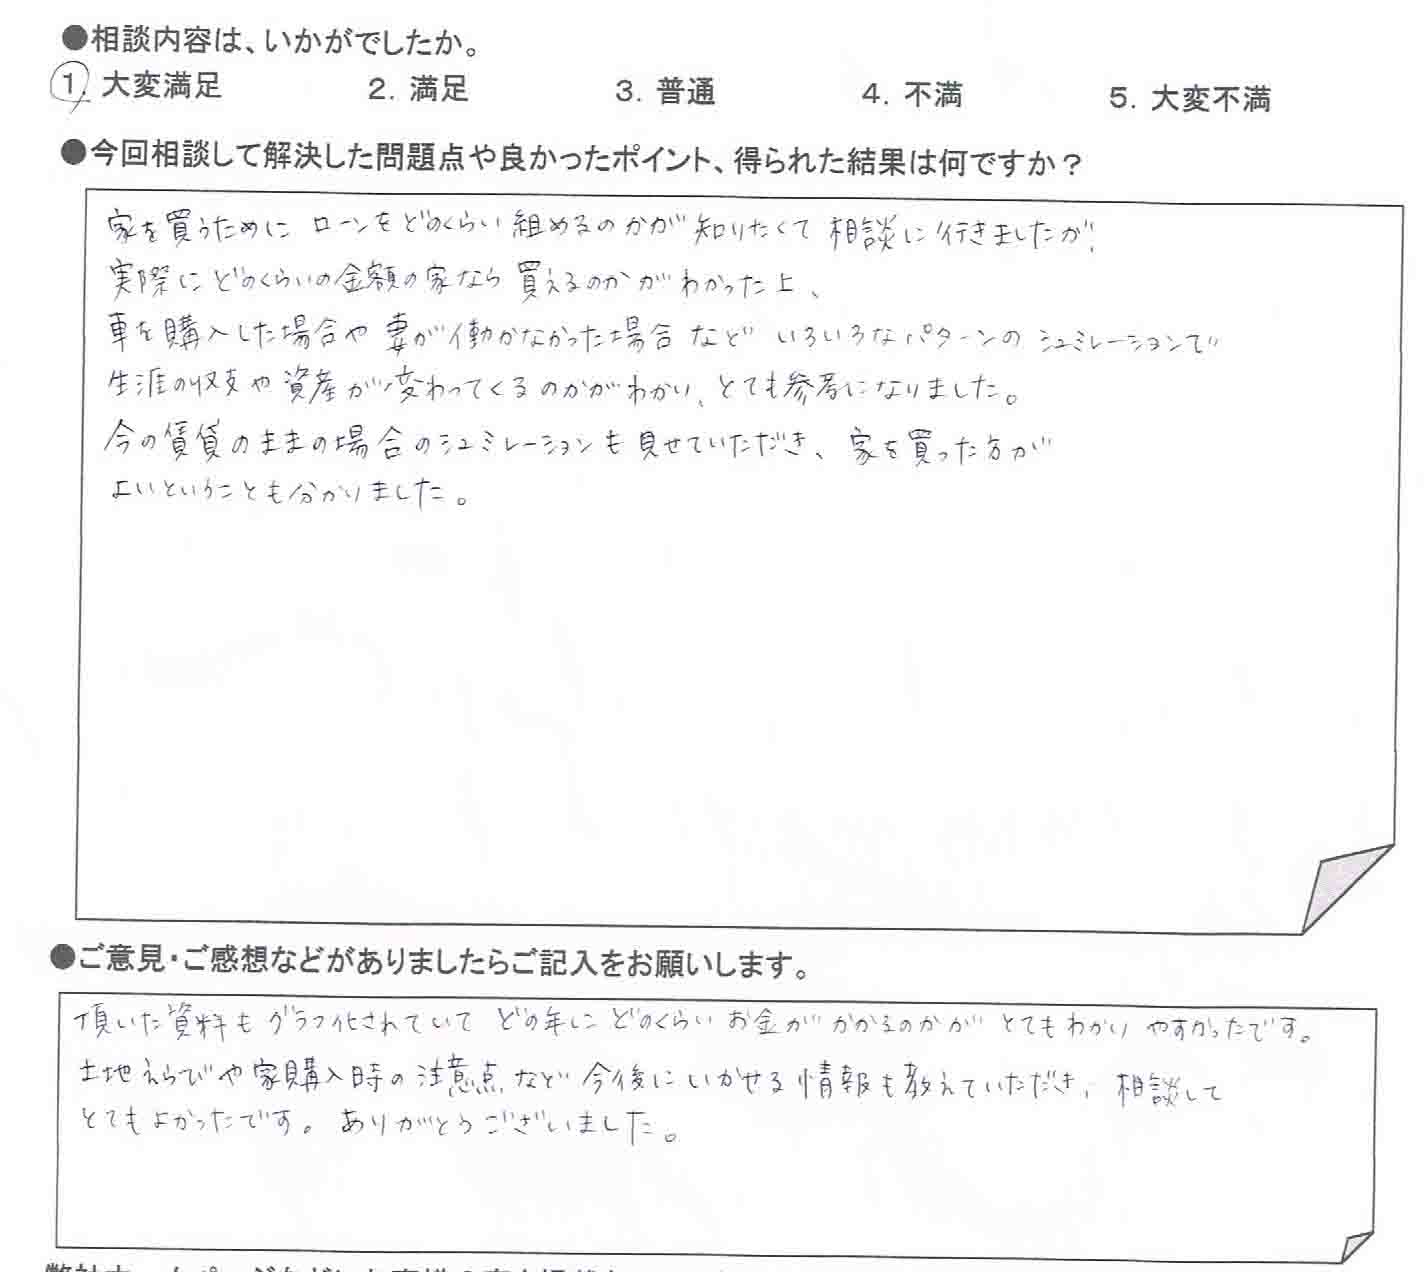 ●相談内容は、いかがでしたか。
1. 大変満足 2. 満足 3. 普通 4. 不満 5. 大変不満
●今回相談して解決した問題点や良かったポイント、得られた結果は何ですか？
家を買うために ローンをどのくらい組めるのかが知りたくて相談に行きましたが、
実際にどのくらいの金額の家なら買えるのかがわかった上、
車を購入した場合や妻が働かなかった場合など いろいろなパターンのシュミレーションで
生涯の収支や資産が変わってくるのかがわかり、とても参考になりました。
今の賃貸のままの場合のシュミレーションも見せていただき、家を買った方が
よいということも分かりました。
●ご意見・ご感想などがありましたらご記入をお願いします。
頂いた資料もグラフ化されていて どの年に どのくらいお金がかかるのかが とてもわかりやすかったです。
土地えらびや家購入時の注意点など今後にいかせる情報も教えていただき、相談して
とてもよかったです。ありがとうございました。